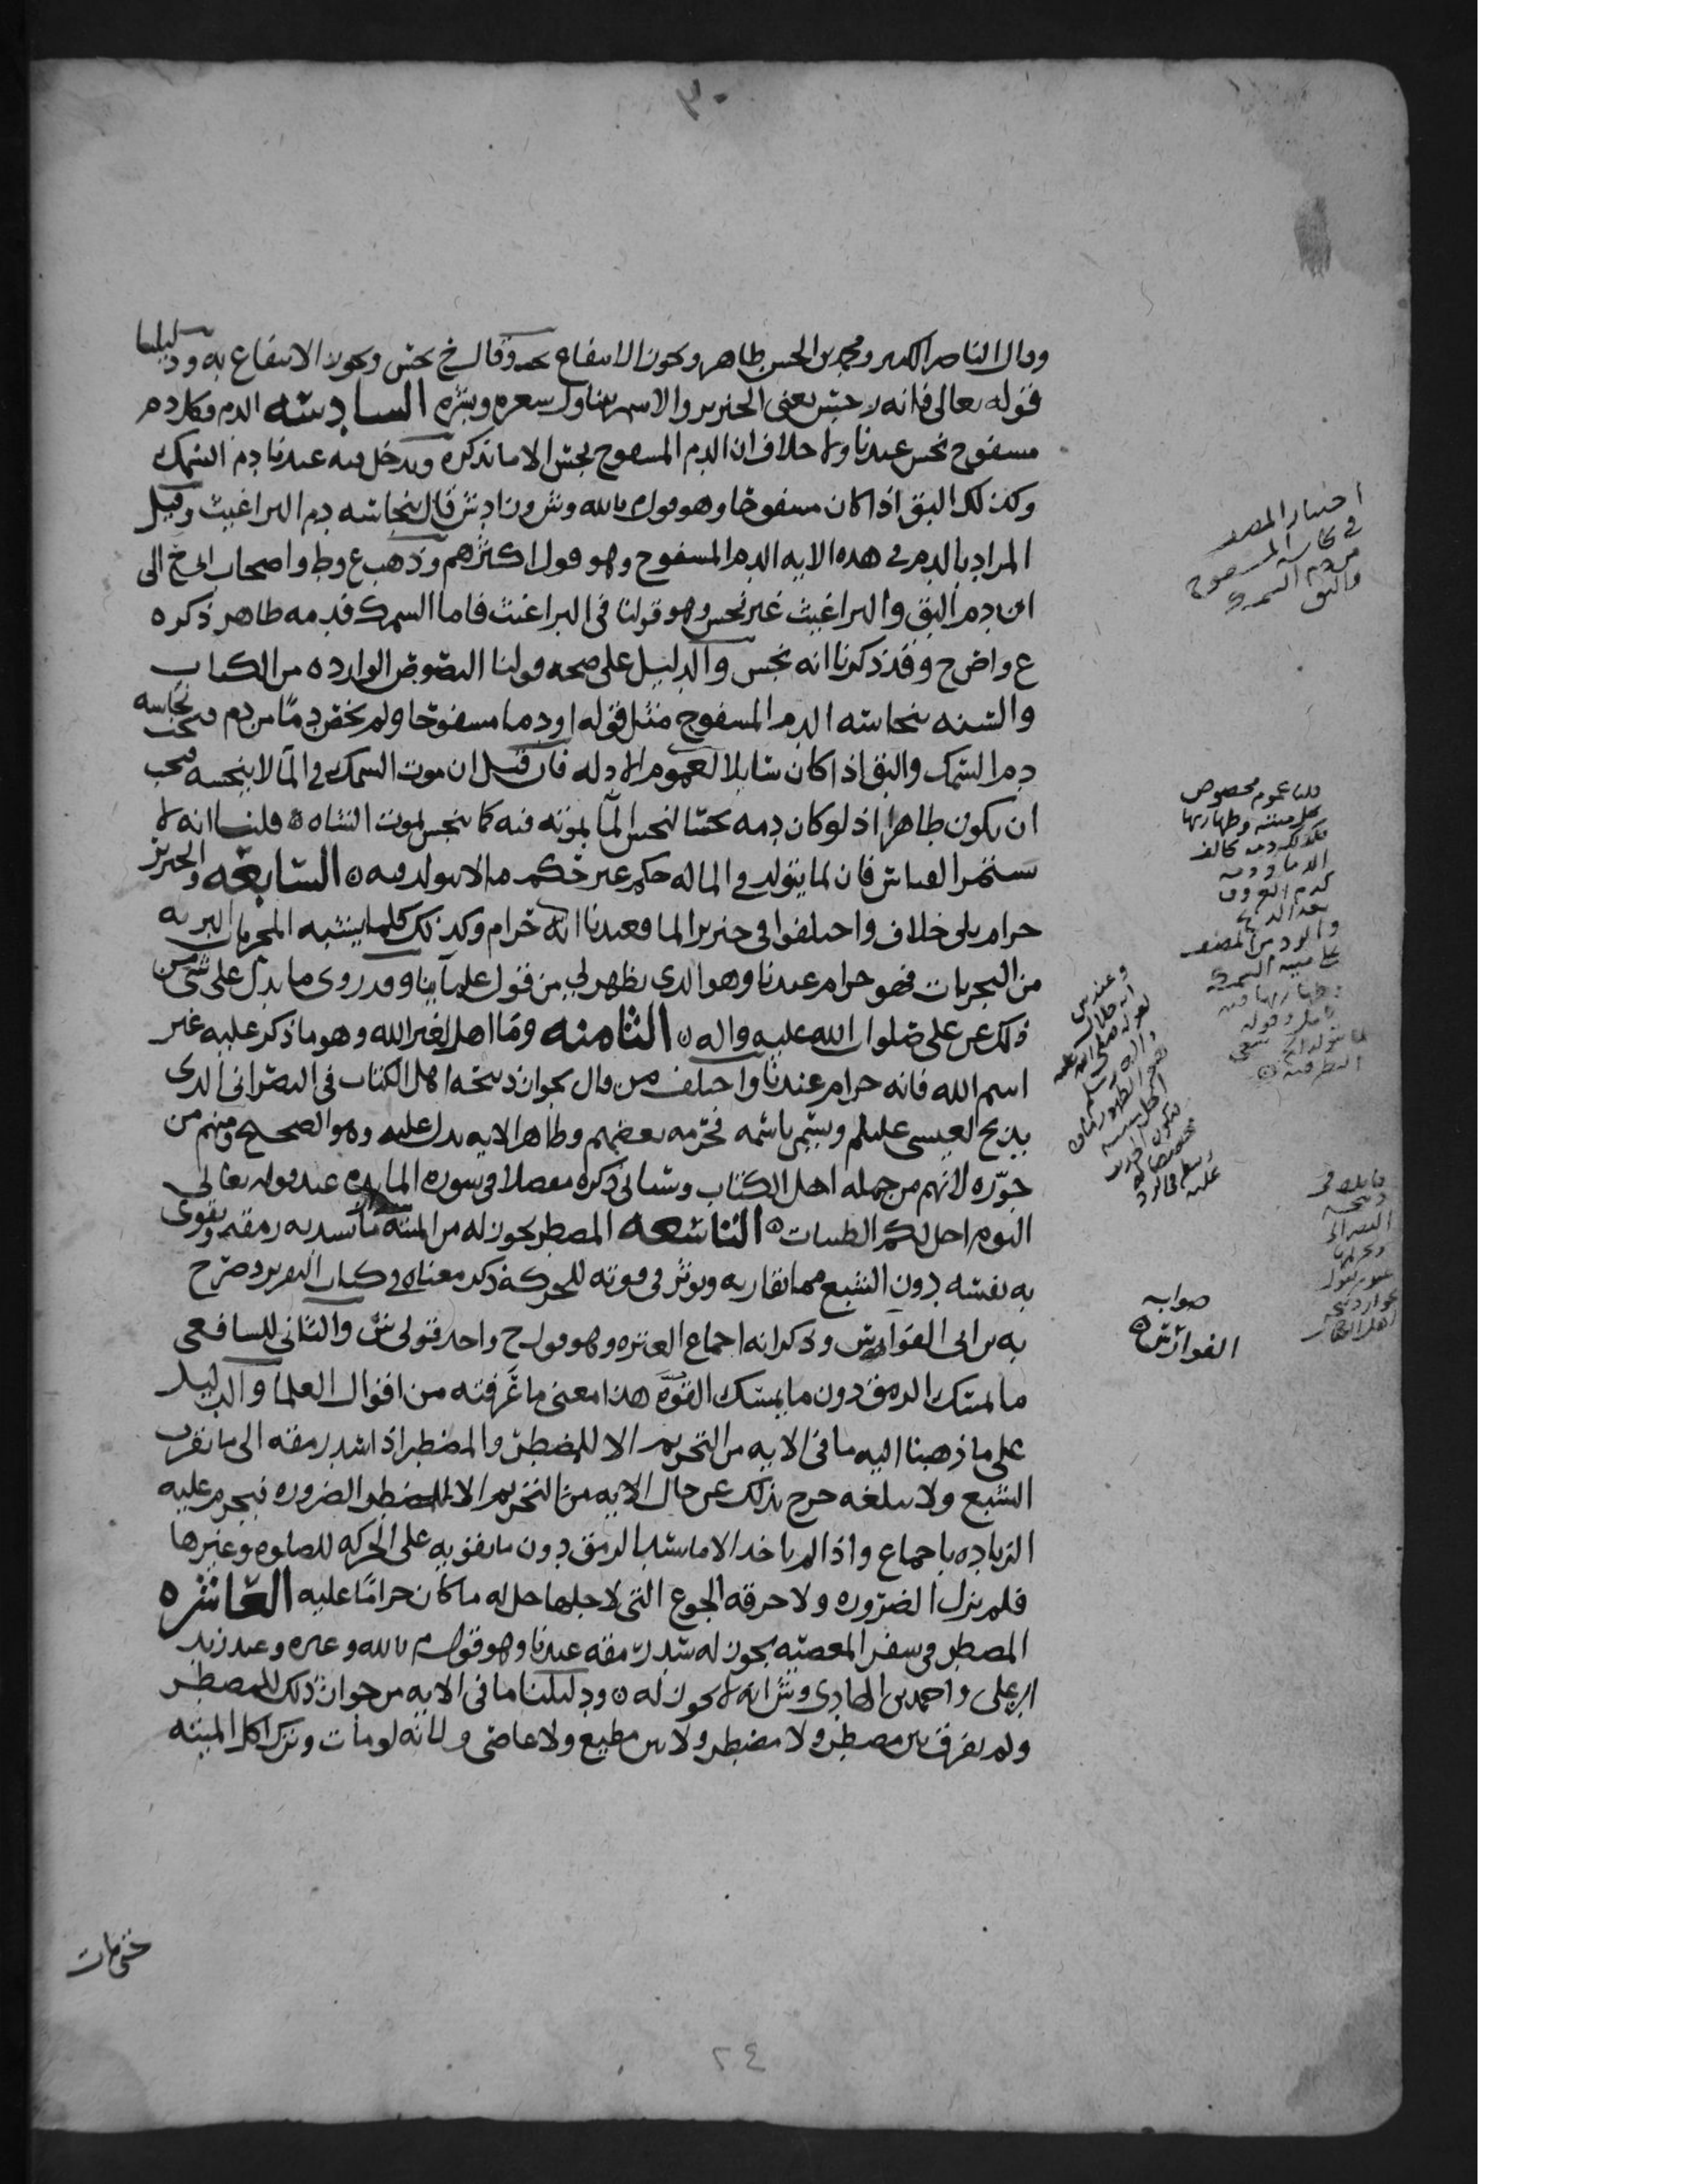 ٣٠
وقال الناصر الكبير ومحمد بن الحسن طاهر ويجوز الانتفاع به وقال ح نجس ويجوز الانتفاع به ودليلنا
قوله تعالى فانه رجس يعني الخنزير والاسم يتناول شعره وبشره السادسه الدم فكل دم
مسفوح نجس عندنا ولا خلاف ان الدم المسفوح نجس الا ما نذكره ويدخل فيه عندنا دم السمك
وكذلك البق اذا كان مسفوحا وهو قول م بالله وش وزاد ش قال بنجاسه دم البراغيث وقيل
المراد بالدم في هذه الايه الدم المسفوح وهو قول اكثرهم وذهب ع وط واصحاب ح الى
ان دم البق والبراغيث غير نجس وهو قولنا في البراغيث فاما السمك فدمه طاهر ذكره
ع واص ح وقد ذكرنا انه نجس والدليل على صحه قولنا النصوص الوارده من الكتاب
والسنه بنجاسه الدم المسفوح مثل قوله او دما مسفوحا ولم يخص دما من دم فيجب نجاسه
دم السمك والبق اذا كان سايلا لعموم الادله فان قيل ان موت السمك في الما لا ينجسه فيجب
ان يكون طاهرا اذ لو كان دمه نجسا لنجس الما بموته فيه كما ينجس بموت الشاه قلنا انه لا
يستمر القياس فان لما يتولد في الما له حكم غير حكم ما لا يتولد فيه السابعه والخنزير
حرام بلى خلاف واختلفوا في خنزير الما فعندنا انه حرام وكذلك كلما يشبه المحرمات البريه
من البحريات فهو حرام عندنا وهو الذي يظهر لي من قول علمآينا وقد روي ما يدل على شي من
ذلك عن علي صلوات الله عليه واله الثامنه وما اهل لغير الله وهو ما ذكر عليه غير
اسم الله فانه حرام عندنا واختلف من قال بجواز ذبيحه اهل الكتاب في النصراني الذي
يذبح لعيسى عليلم ويسمي باسمه فحرمه بعضهم وظاهر الايه يدل عليه وهو الصحيح ومنهم من
جوزه لانهم من جمله اهل الكتاب وسياتي ذكره مفصلا في سوره المايده عند قوله تعالى
اليوم احل لكم الطيبات التاسعه المضطر يجوز له من الميته ما يسد به رمقه ويقوى
به نفسه دون الشبع مما تقاربه ويوثر في قوته للحركه ذكر معناه في كتاب التحرير وصرح
به ابن ابي الفوارس وذكر انه اجماع العتره وهو قول ح واحد قولي ش والثاني للشافعي
ما يمسك الرمق دون ما يمسك القوه هذا معنى ما عرفته من اقوال العلما والدليل
على ما ذهبنا اليه ما في الايه من التحريم الا للمضطر والمضطر اذا سد رمقه الى ما يقرب
الشبع ولا يبلغه خرج بذلك عن حال الايه من التحريم الا للمضطر الضروره فيحرم عليه
الزياده باجماع واذا لم ياخذ الا ما يسد الرمق دون ما يقويه على الحركه للصلوه وغيرها
فلم يزل الضروره ولا حرقه الجوع التي لاجلها حل له ما كان حراما عليه العاشره
المضطر في سفر المعصيه يجوز له سد رمقه عندنا وهو قول م بالله وغيره وعند زيد
ابن علي واحمد بن الهادي وش انه لا يجوز له ودليلنا ما في الايه من جواز ذلك للمضطر
ولم يفرق بين مضطر ولا مضطر ولا بين مطيع ولا عاصي ولانه لو مات وترك اكل الميته
اختيار المصنف
في نجاسه المسفوح
من دم السمك
والبق
قلنا عموم مخصوص
بحل ميتته وطهارتها
فكذلك دمه مخالف
الدما ودمه
كدم العروق
بعد الذبح
صوابه
الفوارس
حتى مات
٢٤